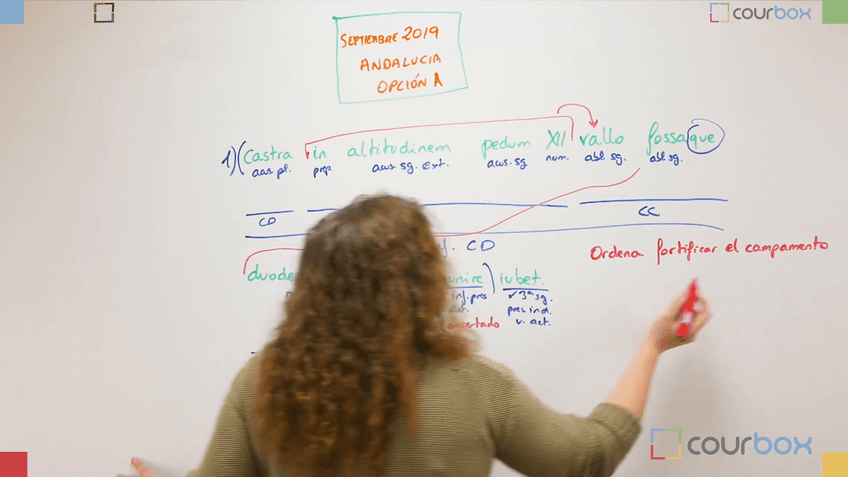 courbox
SEPTIEMBRE 2019
ANDALUCIA
OPCIÓN A
1) (Castra in altitudinem pedum XII vallo fossaque
acus. pl. prep. acus. sg. ext. acus. sg num. abl. sg. abl sg.
CD CC
CD
Ordena fortificar el campamento
duode iubet.
inf. pres √ 3ª sg.
act. pres ind.
v. act.
courbox